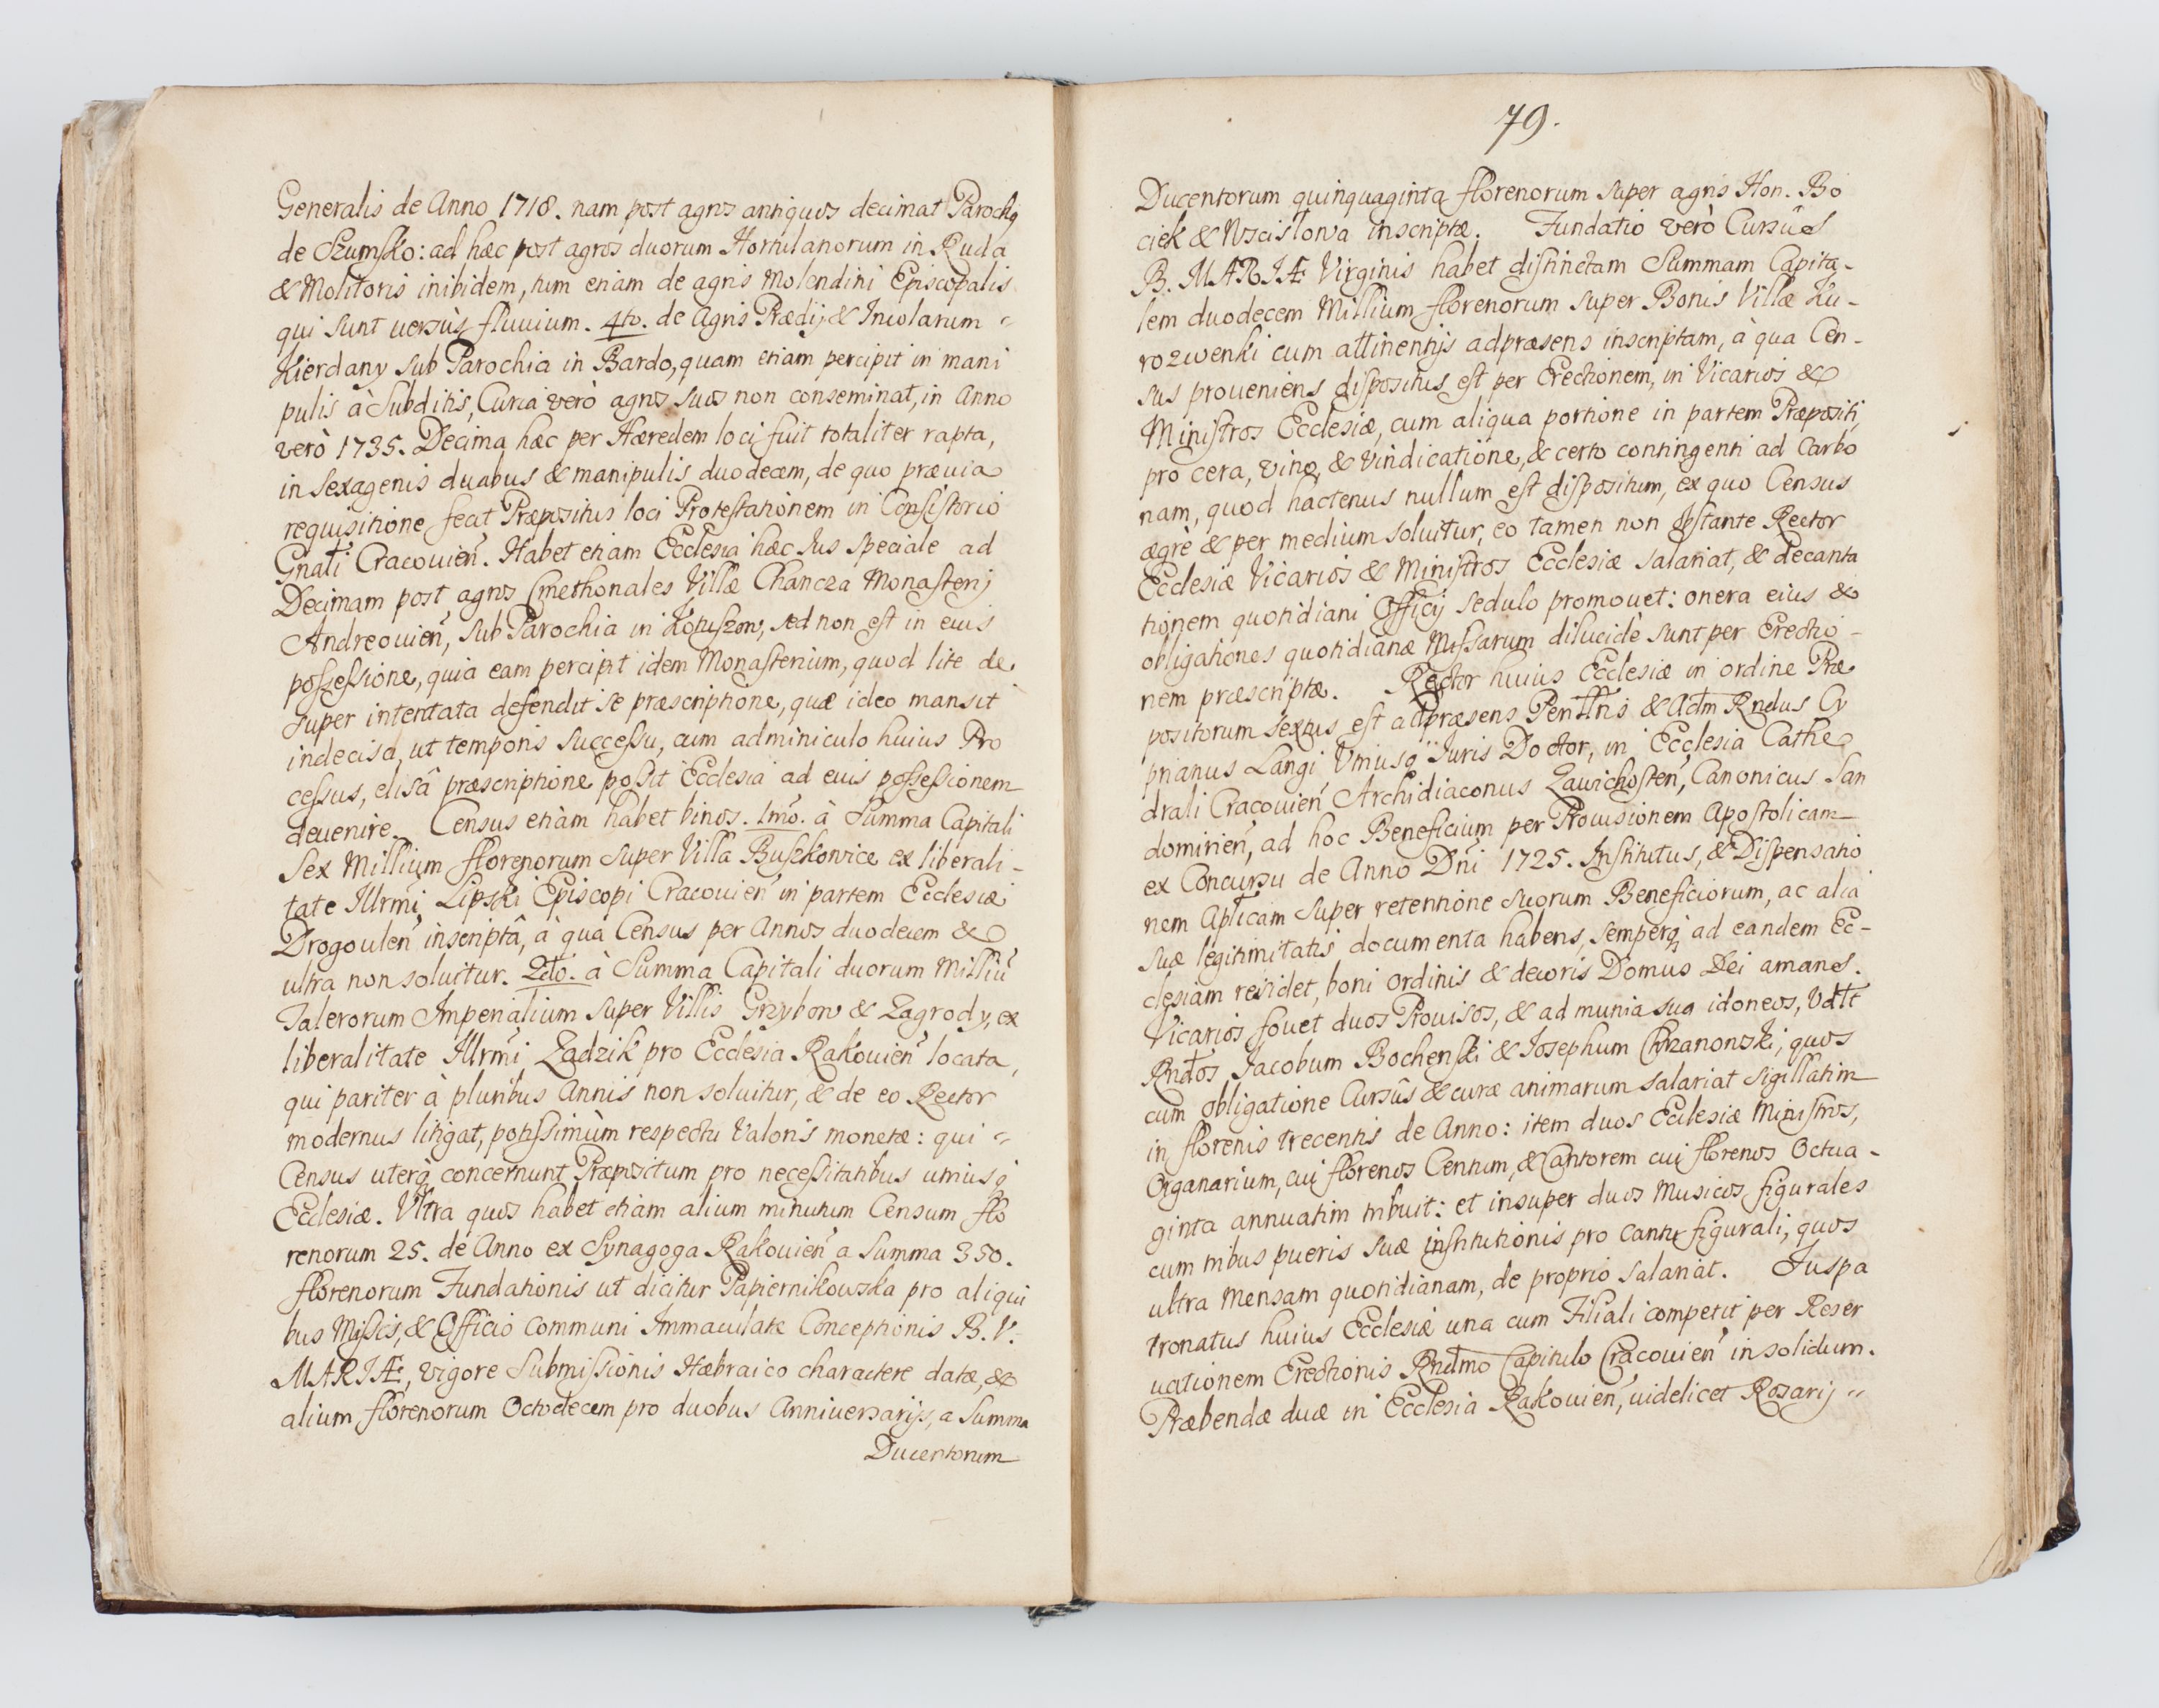 Generalis de Anno 1718. nam post agros antiquos decimat Parochq
de Szumsko: ad hæc post agros duorum Hortulanorum in Ruda
& Molitoris inibidem, tum etiam de agris Molendini Episcopalis
qui sunt versùs fluuium. 4to. de Agris Prædij & Incolarum
Kierdany sub Parochia in Bardo, quam etiam percipit in mani
pulis à Subditis, Curia verò agros suos non conseminat, in Anno
verò 1735. Decima hæc per Hæredem loci fuit totaliter rapta,
in sexagenis duabus & manipulis duodecem, de quo præuia
requisitione fecit Præpositus loci Protestationem in Consistorio
Gnãli Cracouien̄. Habet etiam Ecclesia hæc Jus speciale ad
Decimam post agros Cmethonales Villæ Chancza Monasterij
Andreouien̄, sub Parochia in Kotuszow, sed non est in eius
possessione, quia eam percipit idem Monasterium, quod lite de
super intentata defendit se præscriptione, quæ ideo mansit
indecisa, ut temporis successu, cum adminiculo huius Pro
cessus, elisâ præscriptione possit Ecclesia ad eius possessionem
deuenire. Census etiàm habet binos. 1mo. à Summa Capitali
Sex Millium florenorum super Villa Buszkowice ex liberali-
tate Illrmi Lipski Episcopi Cracouien̄ in partem Ecclesiæ
Drogoulen̄ inscriptâ, à qua Census per Annos duodecem &
ultra non soluitur. 2do. à Summa Capitali duorum Milliū
Talerorum Imperialium super Villis Grzybow & Zagrody, ex
liberalitate Illrmi Zadzik pro Ecclesia Rakouien̄ locata,
qui pariter à pluribus Annis non soluitur, & de eo Rector
modernus litigat, potissimùm respectu Valoris monetæ: qui
Census uterq concernunt Præpositum pro necessitatibus utriusq
Ecclesiæ. Ultra quos habet etiam alium minutum Censum flo
renorum 25. de Anno ex Synagoga Rakouien̄ a Summa 350.
florenorum Fundationis ut dicitur Papiernikowska pro aliqui
bus Missis, & Officio communi Immaculatæ Conceptionis B. V.
MARIÆ, vigore Submissionis Hæbraico charactere datæ, &
alium florenorum Octodecem pro duobus Anniuersarijs, a Summa
Ducentorum
79.
Ducentorum quinquaginta florenorum super agris Hon. Bo
ciek & Wscislowa inscriptæ. Fundatio verò Cursûs
B. MARIÆ Virginis habet distinctam Summam Capita-
lem duodecem Millium florenorum super Bonis Villæ Ku-
rozwenki cum attinentijs adpræsens inscriptam, à qua Cen-
sus proueniens dispositus est per Erectionem, in Vicarios &
Ministros Ecclesiæ, cum aliqua portione in partem Præpositi,
pro cera, vino, & vindicatione, & certo contingenti ad Carbo
nam, quod hactenus nullum est dispositum, ex quo Census
ægrè & per medium soluitur, eo tamen non obstante Rector
Ecclesiæ Vicarios & Ministros Ecclesiæ salariat, & decanta
tionem quotidiani Officij sedulo promouet: onera eius &
obligationes quotidianæ Missarum dilucidè sunt per Erectio-
nem præscriptæ. Rector huius Ecclesiæ in ordine Præ
positorum sextus est adpræsens & Adm Rndus Cy
prianus Langi Vtriusq Iuris Doctor, in Ecclesia Cathe
drali Cracouien̄ Archidiaconus Zawichosten̄, Canonicus San
domirien̄, ad hoc Beneficium per Prouisionem Apostolicam
ex Concursu de Anno Dni 1725. Institutus, & Dispensatio
nem Aplicam super retentione suorum Beneficiorum, ac alia
suæ legitimitatis documenta habens, semperq ad eandem Ec-
clesiam residet, boni ordinis & decoris Domus Dei amans.
Vicarios fouet duos Prouisos, & ad munia sua idoneos, Vdlt
Rndos Jacobum Bochenski & Josephum Chrzanowski, quos
cum obligatione Cursûs & curæ animarum salariat sigillatim
in florenis trecentis de Anno: item duos Ecclesiæ Ministros,
Organarium, cui florenos Centum, & Cantorem cui florenos Octua-
ginta annuatim tribuit: et insuper duos Musicos figurales
cum tribus pueris suæ institutionis pro cantu figurali, quos
ultra Mensam quotidianam, de proprio salariat. Juspa
tronatus huius Ecclesiæ una cum Filiali competit per Reser
uationem Erectionis Rndmo Capitulo Cracouien̄ in solidum.
Præbendæ duæ in Ecclesia Rakouien̄, uidelicet Rosarij